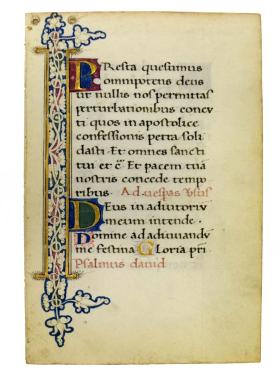 PResta quesumus
omnipotens deus
ut nullis nos permittas
perturbationibus concu
ti quos in apostolice
confessionis petra soli
dasti· Et omnes sancti
tui et c̄· Et pacem tuā
nostris concede temp
ribus· Ad uespas Uſus
DEus in adiutoriū
meum intende·
Domine ad adiuuandū
me festina Gloria pri
Psalmus dauid